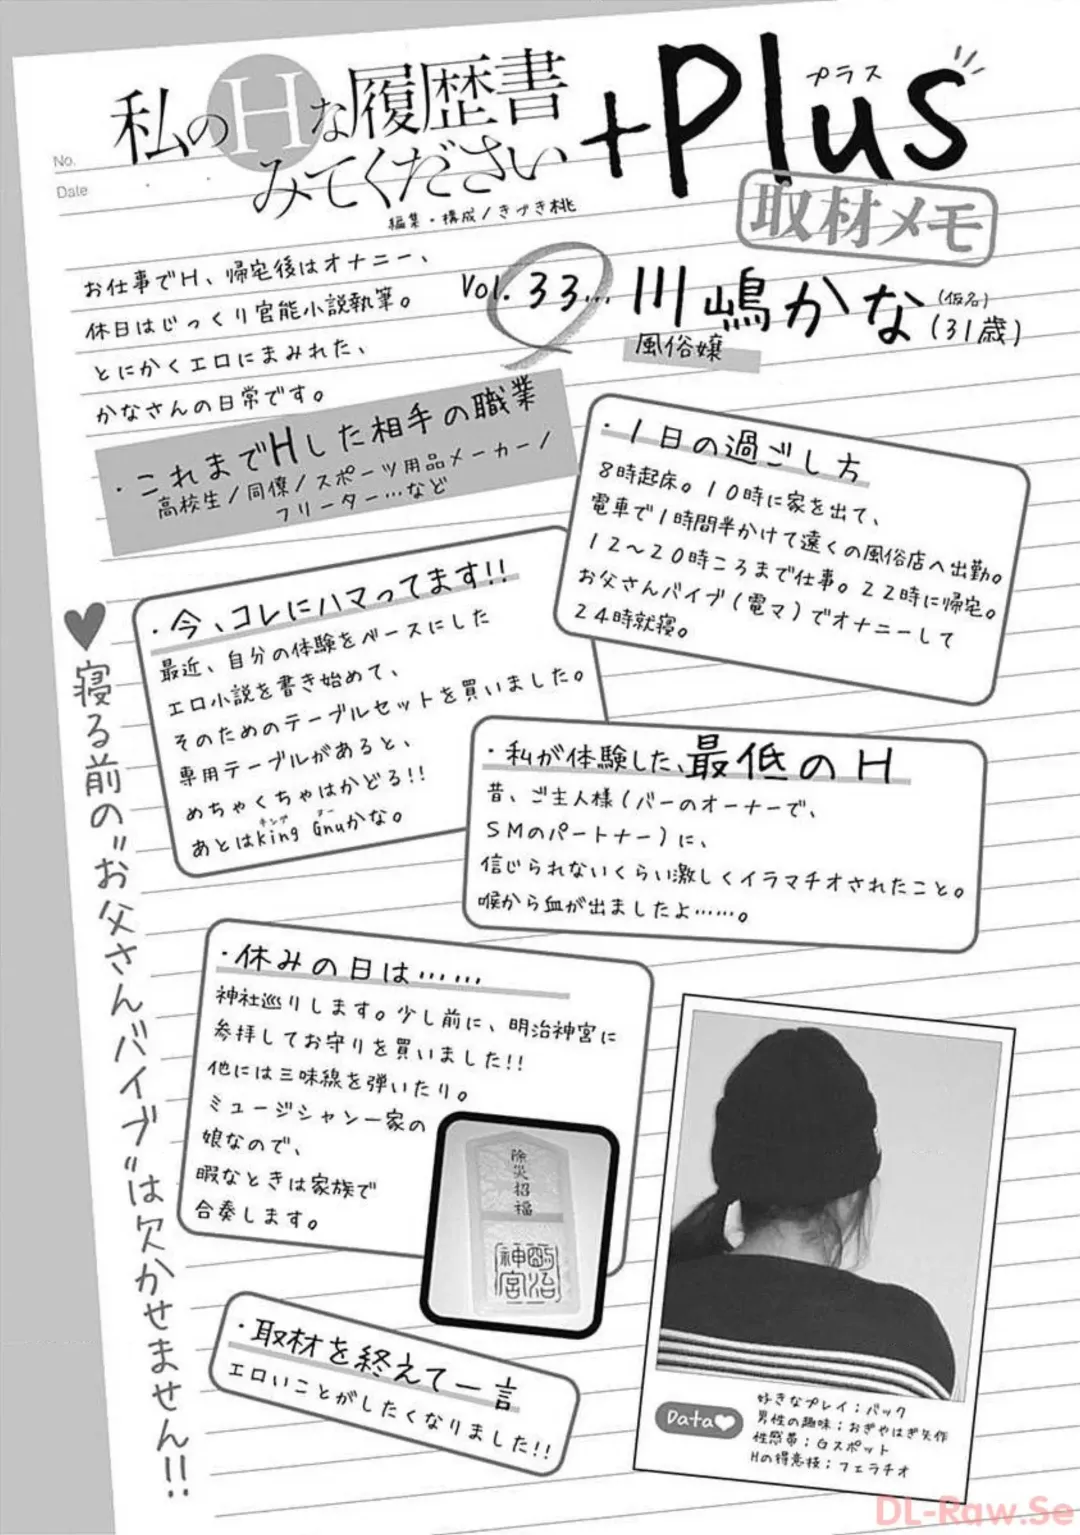 No.
Date
私のHな履歴書
みてください
+Plus
プラス
編集・構成/きづき桃
取材メモ
お仕事でH、帰宅後はオナニー、
休日はじっくり官能小説執筆。
とにかくエロにまみれた、
かなさんの日常です。
Vol.33… 川嶋かな(仮名)(31歳)
風俗嬢
・これまでHした相手の職業
高校生/同僚/スポーツ用品メーカー/
フリーター…など
・1日の過ごし方
8時起床。10時に家を出て、
電車で1時間半かけて遠くの風俗店へ出勤。
12〜20時ころまで仕事。22時に帰宅。
お父さんバイブ(電マ)でオナニーして
24時就寝。
・今、コレにハマってます!!
最近、自分の体験をベースにした
エロ小説を書き始めて、
そのためのテーブルセットを買いました。
専用テーブルがあると、
めちゃくちゃはかどる!!
キング ヌー
あとはKing Gnuかな。
♥寝る前の"お父さんバイブ"は欠かせません!!
・私が体験した、最低のH
昔、ご主人様(バーのオーナーで、
SMのパートナー)に、
信じられないくらい激しくイラマチオされたこと。
喉から血が出ましたよ……。
・休みの日は……
神社巡りします。少し前に、明治神宮に
参拝してお守りを買いました!!
他には三味線を弾いたり。
ミュージシャン一家の
娘なので、
暇なときは家族で
合奏します。
除災招福
明治
神宮
・取材を終えて一言
エロいことがしたくなりました!!
Data♥
好きなプレイ;バック
男性の趣味;おぎやはぎ矢作
性感帯;Gスポット
Hの得意技;フェラチオ
DL-Raw.Se